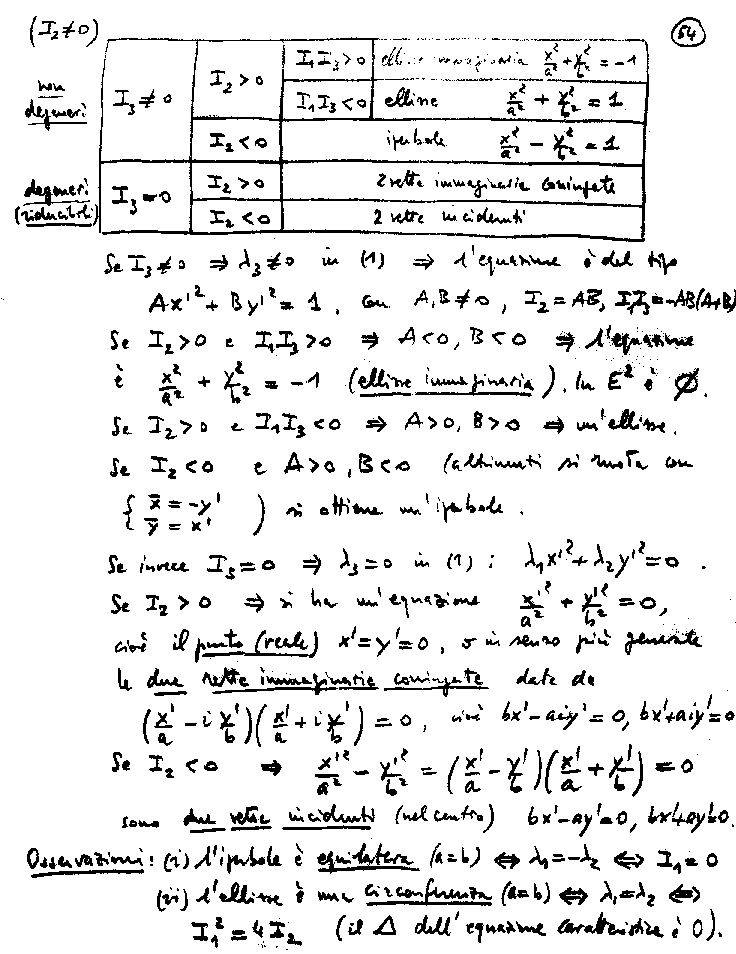 (I₂≠0) 54
non degeneri I₃≠0 I₂>0 I₁I₃>0 ellisse immaginaria x'²/a² + y'²/b² = -1
I₁I₃<0 ellisse x'²/a² + y'²/b² = 1
I₂<0 iperbole x'²/a² - y'²/b² = 1
degeneri (riducibili) I₃=0 I₂>0 2 rette immaginarie coniugate
I₂<0 2 rette incidenti
Se I₃≠0 ⇒ λ₃≠0 in (1) ⇒ l'equazione è del tipo
Ax'² + By'² = 1, con A,B≠0, I₂=AB, I₁I₃=-AB(A+B)
Se I₂>0 e I₁I₃>0 ⇒ A<0, B<0 ⇒ l'equazione
è x'²/a² + y'²/b² = -1 (ellisse immaginaria). In E² è ∅.
Se I₂>0 e I₁I₃<0 ⇒ A>0, B>0 ⇒ un'ellisse.
Se I₂<0 e A>0, B<0 (altrimenti si ruota con
{ x̄ = -y'
ȳ = x' ) si ottiene un'iperbole.
Se invece I₃=0 ⇒ λ₃=0 in (1): λ₁x'²+λ₂y'²=0.
Se I₂>0 ⇒ si ha un'equazione x'²/a² + y'²/b² = 0,
cioè il punto (reale) x'=y'=0, o in senso più generale
le due rette immaginarie coniugate date da
(x'/a - i y'/b)(x'/a + i y'/b) = 0, cioè bx'-aiy'=0, bx'+aiy'=0
Se I₂<0 ⇒ x'²/a² - y'²/b² = (x'/a - y'/b)(x'/a + y'/b) = 0
sono due rette incidenti (nel centro) bx'-ay'=0, bx'+ay'=0.
Osservazioni: (i) l'iperbole è equilatera (a=b) ⇔ λ₁=-λ₂ ⇔ I₁=0
(ii) l'ellisse è una circonferenza (a=b) ⇔ λ₁=λ₂ ⇔
I₁²=4I₂ (il Δ dell'equazione caratteristica è 0).